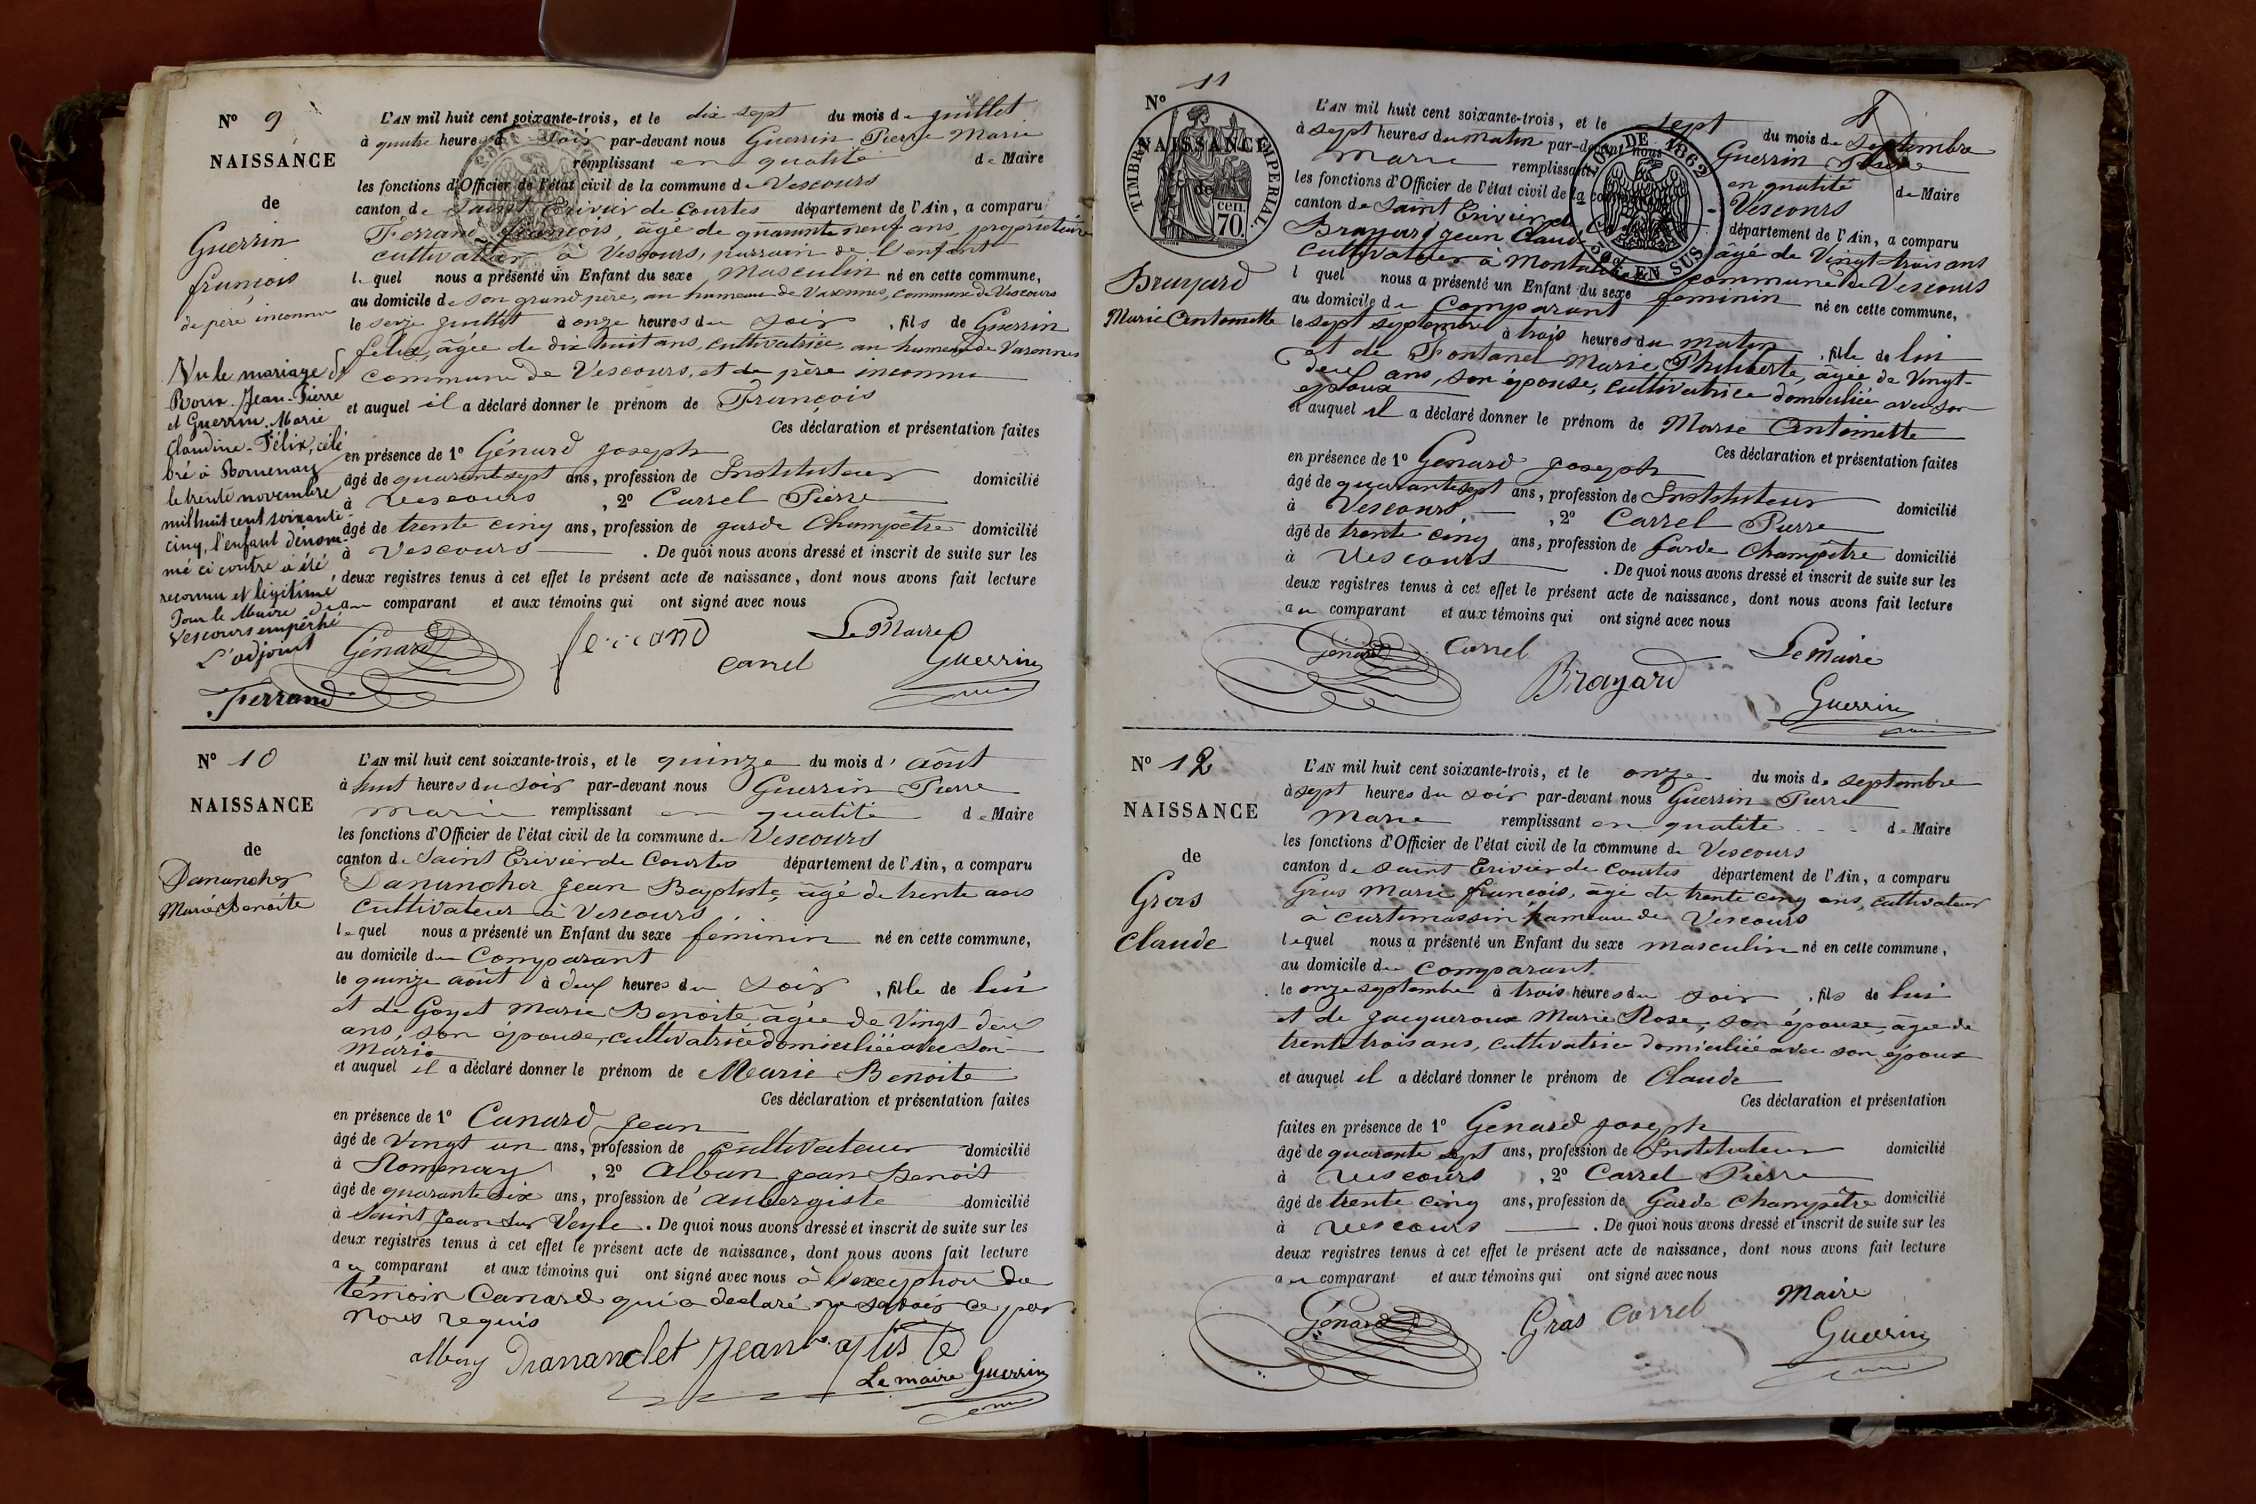 N° 9
NAISSANCE
de
Guerrin
françois
de père inconnu
Vu le mariage de
Roux Jean-Pierre
et Guerrin Marie
Claudine-Félix, célé
bré à Romenay
le trente novembre
mil huit cent soixante
cinq, l'enfant dénom-
mé ci contre a été
reconnu et légitimé
Pour le Maire de
Vescours empêché
L'adjoint
Ferrand
L'AN mil huit cent soixante-trois, et le dix sept du mois de juillet
à quatre heures du Soir par-devant nous Guerrin Pierre Marie
remplissant en qualité de Maire
les fonctions d'Officier de l'état civil de la commune de Vescours
canton de Saint Trivier de Courtes département de l'Ain, a comparu
Ferrand françois, âgé de quarante neuf ans, propriétaire
cultivateur à Vescours, parrain de l'enfant
lequel nous a présenté un Enfant du sexe Masculin né en cette commune,
au domicile de son grand père, au hameau de Varennes, commune de Vescours
le seize juillet à onze heures du soir, fils de Guerrin
felix, âgée de dix huit ans, cultivatrice au hameau de Varennes
commune de Vescours, et de père inconnu
et auquel il a déclaré donner le prénom de François
Ces déclaration et présentation faites
en présence de 1° Génard joseph
âgé de quarante sept ans, profession de Instituteur domicilié
à Vescours, 2° Carrel Pierre
âgé de trente cinq ans, profession de garde Champêtre domicilié
à Vescours. De quoi nous avons dressé et inscrit de suite sur les
deux registres tenus à cet effet le présent acte de naissance, dont nous avons fait lecture
au comparant et aux témoins qui ont signé avec nous
Génard ferrand carrel Le Maire
Guerrin
N° 10
NAISSANCE
de
Danancher
Marie Benoite
L'AN mil huit cent soixante-trois, et le quinze du mois d'août
à huit heures du soir par-devant nous Guerrin Pierre
marie remplissant en qualité de Maire
les fonctions d'Officier de l'état civil de la commune de Vescours
canton de Saint Trivier de Courtes département de l'Ain, a comparu
Danancher Jean Baptiste, âgé de trente ans
cultivateur à Vescours
lequel nous a présenté un Enfant du sexe féminin né en cette commune,
au domicile du Comparant
le quinze août à deux heures du soir, fille de lui
et de Goyet Marie Benoite âgée de Vingt-deux
ans, son épouse, cultivatrice domiciliée avec son
mari
et auquel il a déclaré donner le prénom de Marie Benoite
Ces déclaration et présentation faites
en présence de 1° Canard Jean
âgé de Vingt un ans, profession de cultivateur domicilié
à Romenay, 2° Alban Jean Benoit
âgé de quarante six ans, profession de aubergiste domicilié
à Saint Jean sur Veyle. De quoi nous avons dressé et inscrit de suite sur les
deux registres tenus à cet effet le présent acte de naissance, dont nous avons fait lecture
au comparant et aux témoins qui ont signé avec nous à l'exception du
témoin Canard qui a declaré ne savoir ce par
nous requis
Jean baptiste
Le maire Guerrin
N° 11
NAISSANCE
de
TIMBRE IMPERIAL
70 cen.
LOI DE 1862
EN SUS
Brayard
Marie Antoinette
L'AN mil huit cent soixante-trois, et le sept du mois de septembre
à sept heures du matin par-devant nous Guerrin Pierre
marie remplissant en qualité de Maire
les fonctions d'Officier de l'état civil de la commune Vescours
canton de Saint Trivier de département de l'Ain, a comparu
Brayard Jean Claude âgé de Vingt trois ans
cultivateur à commune de Vescours
lequel nous a présenté un Enfant du sexe feminin né en cette commune,
au domicile de Comparant
le sept septembre à trois heures du matin, fille de lui
et de Fontanel Marie Philiberte, âgée de Vingt-
deux ans, son épouse, cultivatrice domiciliée avec son
époux
et auquel il a déclaré donner le prénom de Marie Antoinette
Ces déclaration et présentation faites
en présence de 1° Genard Joseph
âgé de quarante sept ans, profession de Instituteur domicilié
à Vescours, 2° Carrel Pierre
âgé de trente cinq ans, profession de Garde Champêtre domicilié
à Vescours. De quoi nous avons dressé et inscrit de suite sur les
deux registres tenus à cet effet le présent acte de naissance, dont nous avons fait lecture
au comparant et aux témoins qui ont signé avec nous
Génard Carrel Brayard Le Maire
Guerrin
N° 12
NAISSANCE
de
Gros
Claude
L'AN mil huit cent soixante-trois, et le onze du mois de septembre
à sept heures du soir par-devant nous Guerrin Pierre
Marie remplissant en qualité de Maire
les fonctions d'Officier de l'état civil de la commune de Vescours
canton de Saint Trivier de Courtes département de l'Ain, a comparu
Gras Marie françois, âgé de trente cinq ans, cultivateur
à curtimassin hameau de Vescours
lequel nous a présenté un Enfant du sexe masculin né en cette commune,
au domicile du comparant
le onze septembre à trois heures du soir, fils de lui
et de Jacqueroux Marie Rose, son épouse, âgée de
trente trois ans, cultivatrice domiciliée avec son époux
et auquel il a déclaré donner le prénom de Claude
Ces déclaration et présentation
faites en présence de 1° Genard Joseph
âgé de quarante sept ans, profession de Instituteur domicilié
à Vescours, 2° Carrel Pierre
âgé de trente cinq ans, profession de Garde Champêtre domicilié
à Vescours. De quoi nous avons dressé et inscrit de suite sur les
deux registres tenus à cet effet le présent acte de naissance, dont nous avons fait lecture
au comparant et aux témoins qui ont signé avec nous
Génard Gras Carrel Maire
Guerrin